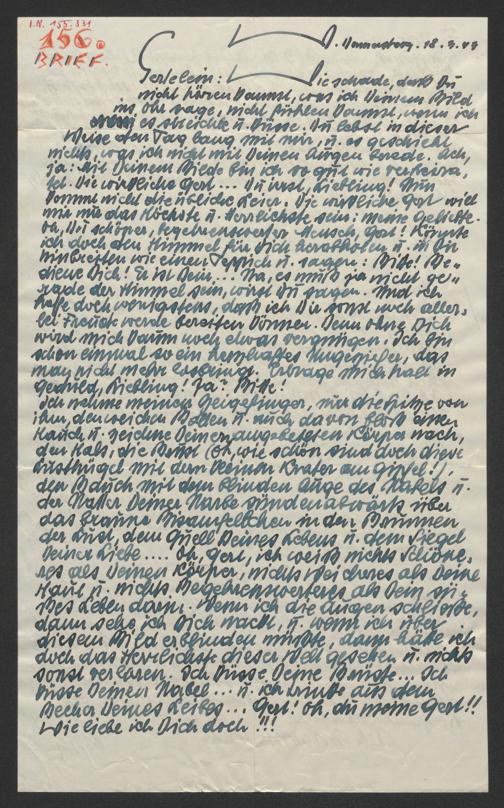 I.N. 155.331
156.
BRIEF.
D. Wannersberg, 18.3.47
Gertelein: Wie schade, daß Du
nicht hören kannst, was ich Deinem Bild
ins Ohr sage, nicht fühlen kannst, wenn ich
es streichle u. küsse. Du lebst in dieser
Weise den Tag lang mit mir, u. es geschieht
nichts, was ich nicht mit Deinen Augen berede. Ach,
ja: Mit Deinem Bilde bin ich so gut wie verheira-
tet. Die wirkliche Gert ... Du irrst, Liebling! Nun
kommt nicht die übliche Leier. Die wirkliche Gert will
mir nur das Höchste u. Herrlichste sein: meine Geliebte.
Oh, Du schöner, begehrenswerter Mensch, Gert! Könnte
ich doch den Himmel für Dich herabholen u. ihn Dir
hinbreiten wie einen Teppich u. sagen: Bitte! Be-
diene Dich! Er ist Dein... Na, es muß ja nicht ge-
rade der Himmel sein, wirst Du sagen. Und ich
hoffe doch wenigstens, daß ich Dir sonst noch aller-
lei Freude werde bereiten können. Denn ohne Dich
wird mich kaum noch etwas vergnügen. Ich bin
schon einmal so ein Ungeziefer, das
man nicht mehr Ertrage mich halt in
Geduld, Liebling! Ja? Bitte!
Ich nehme meinen Zeigefinger, nur die Spitze von
ihm, den weichen Ballen u. auch davon bloß einen
Hauch u. zeichne Deinen angebeteten Körper nach,
den Hals, die Brust (oh, wie schön sind doch diese
Lusthügel mit dem kleinen Krater am Gipfel!),
den Bauch mit dem blinden Auge des Nabels u.
der Natter Deiner Narbe sündenabwärts über
das braune Bisamfellchen in den Brunnen
der Lust, dem Quell Deines Lebens u. dem Siegel
Deiner Liebe .... Oh, Gert, ich weiß nichts Schöne-
res als Deinen Körper, nichts Weicheres als Deine
Haut u. nichts Begehrenswerteres als Dein sü-
ßes Leben darin. Wenn ich die Augen schließe,
dann sehe ich Dich nackt, u. wenn ich über
diesem Bild erblinden müßte, dann hätte ich
doch das Herrlichste dieser Welt gesehen u. nichts
sonst verloren. Ich küsse Deine Brüste... Ich
küsse Deinen Nabel... u. ich trinke aus dem
Becher Deines Leibes... Gert! Oh, du meine Gert!!
Wie liebe ich Dich doch!!!